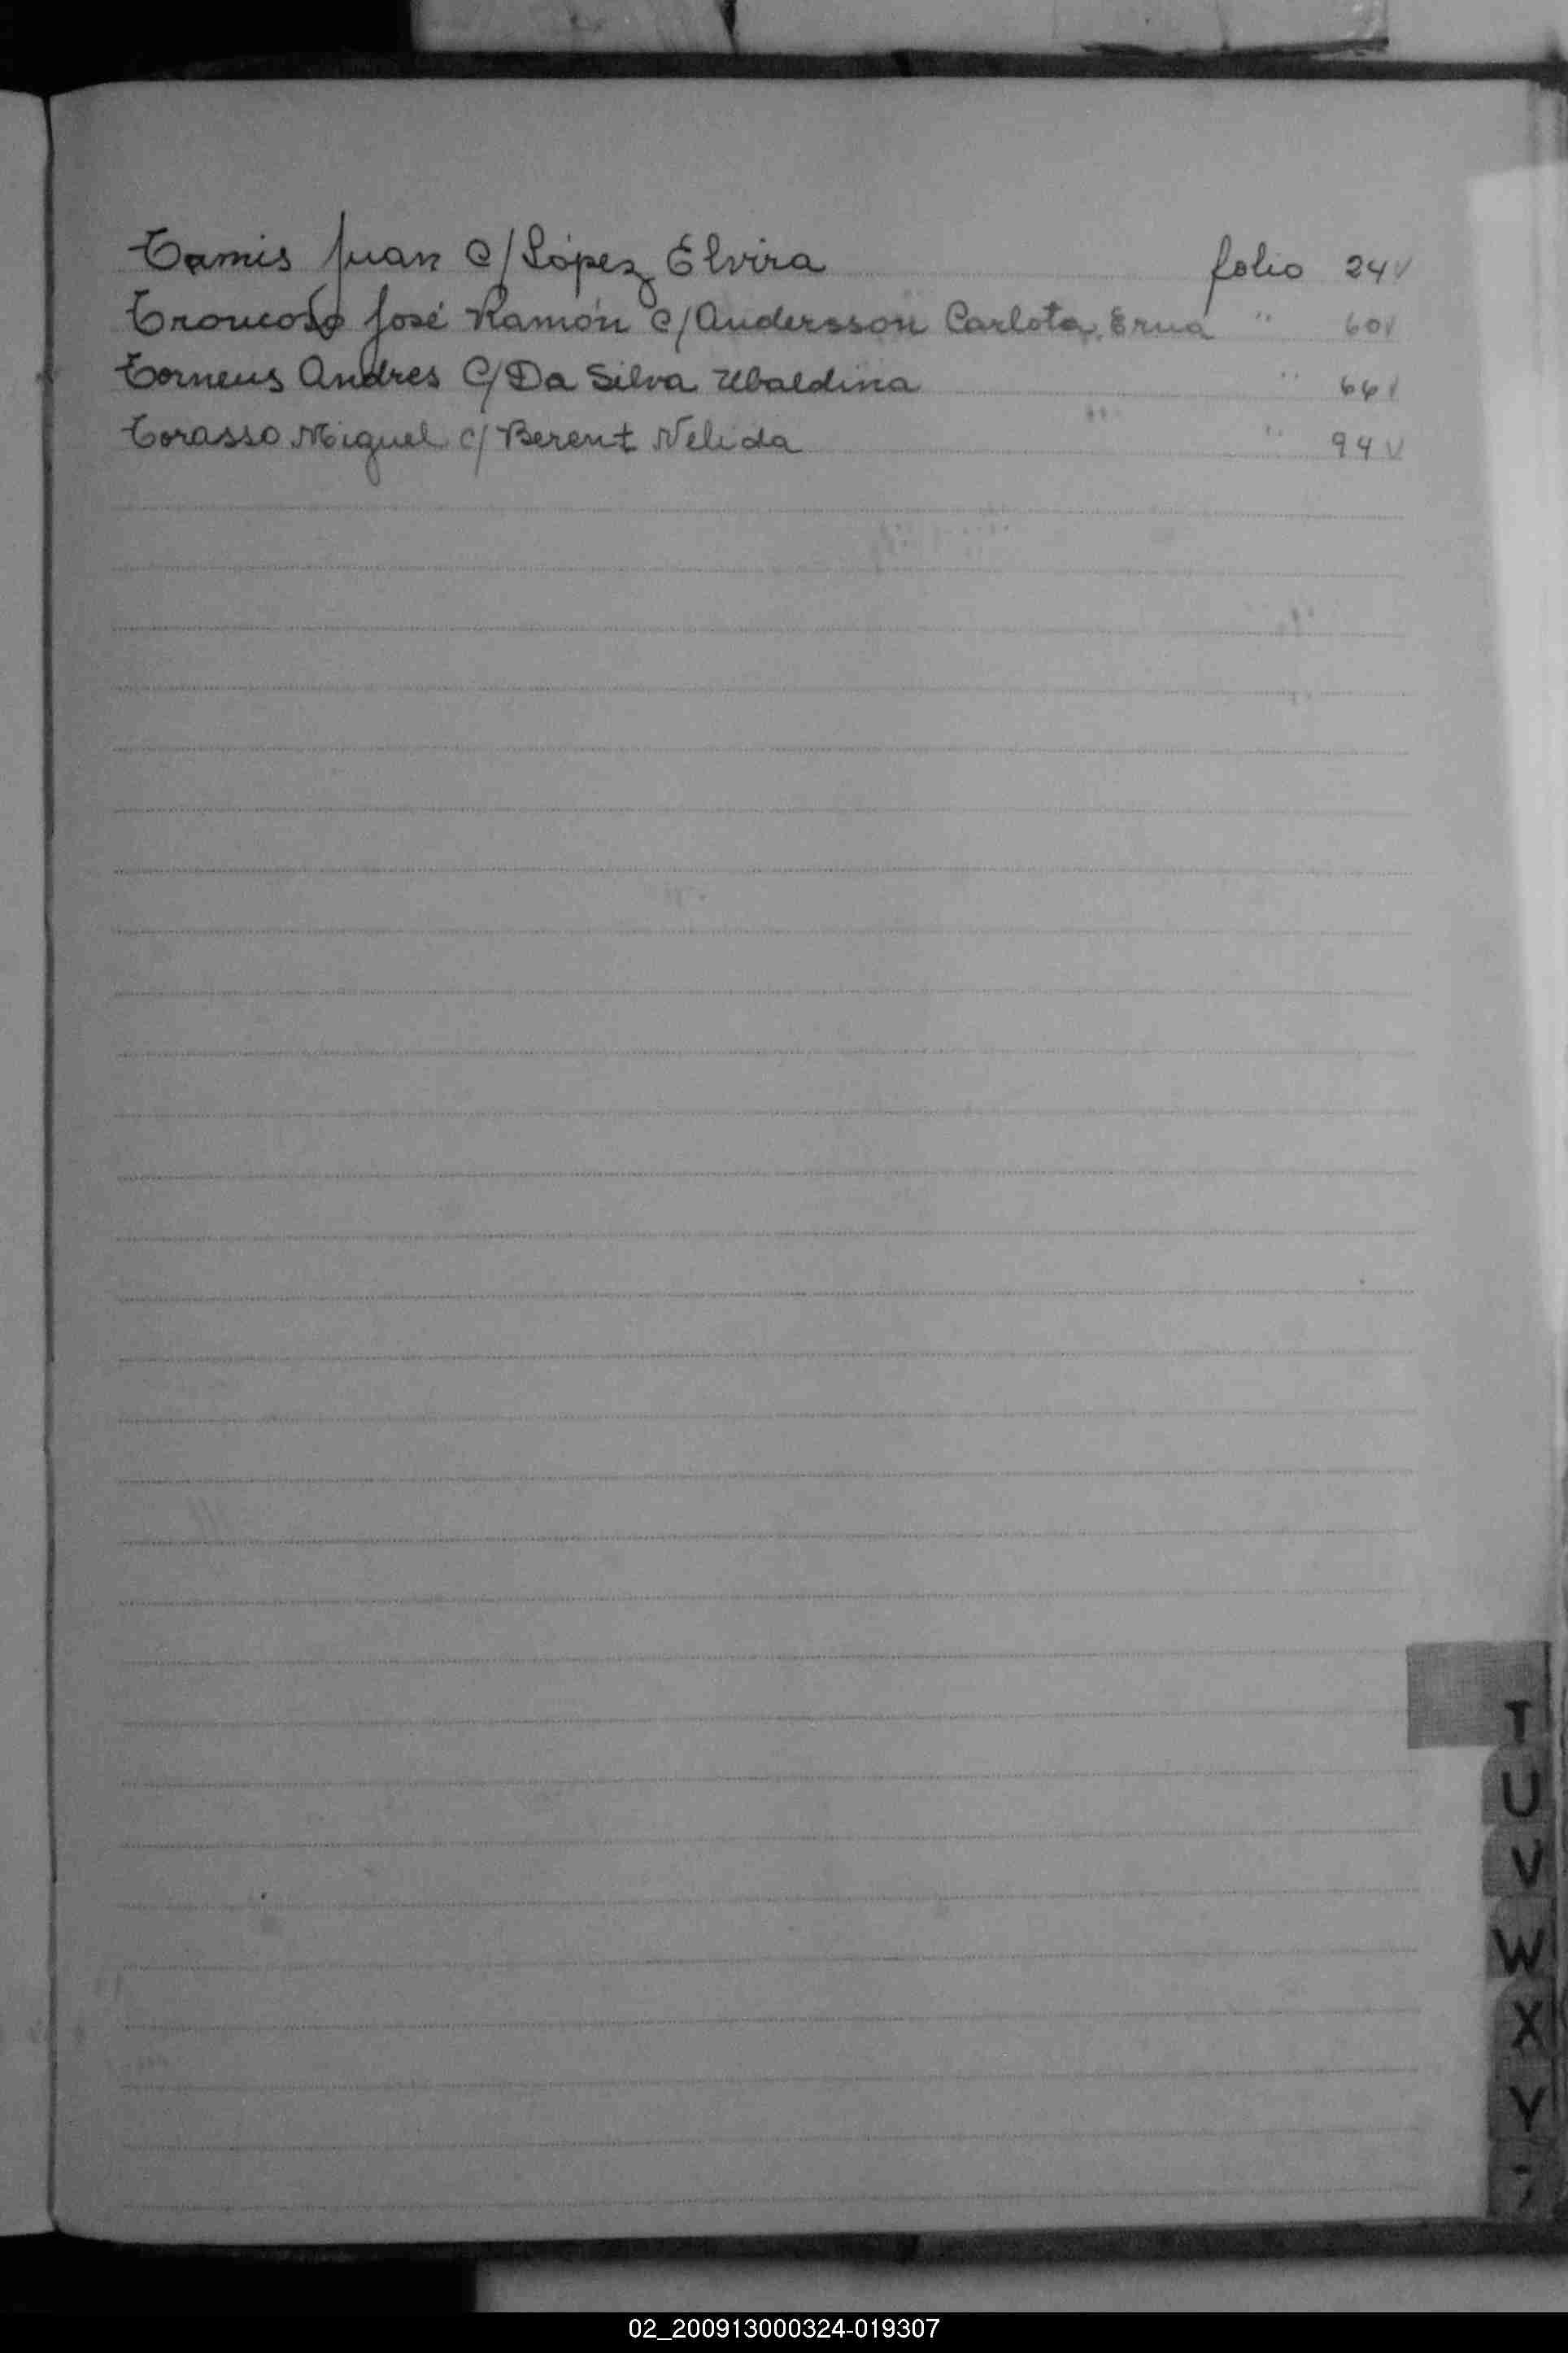 Tamis Juan c/ López Elvira folio 24 V
Troncoso José Ramón c/ Andersson Carlota Erna " 60 V
Torneus Andres c/ Da Silva Ubaldina " 66 V
Torasso Miguel c/ Berent Nelida " 94 V
T
U
V
W
X
Y
02_200913000324-019307